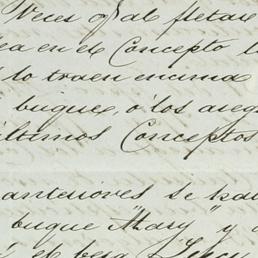 Veces of al fletar
en el Concepto
lo traen encima
buque, o los
últimos Conceptos
anteriores se
buque "Mary" y
el berg